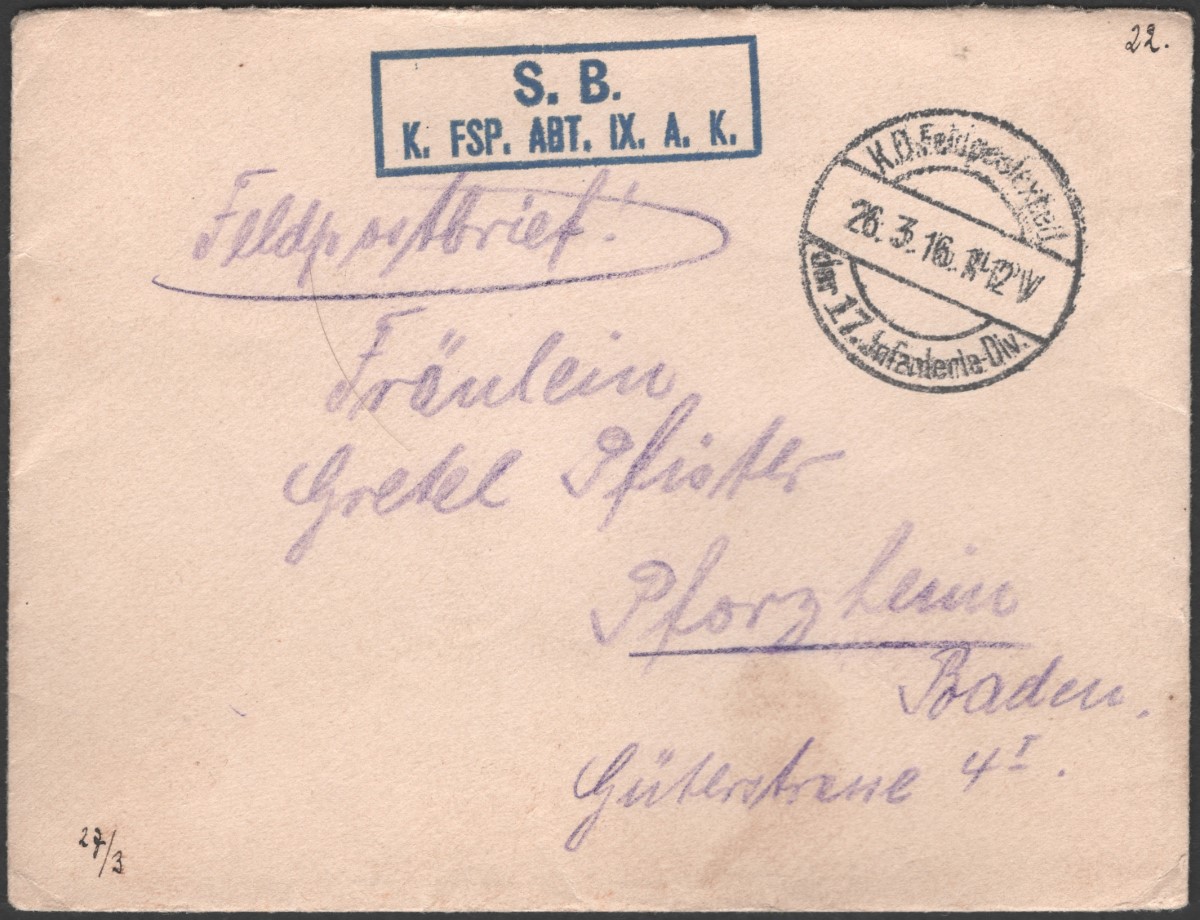 22.
S. B.
K. FSP. ABT. IX. A. K.
K.D.Feldpostexped
26.3.16. 11-12 V
der 17. Infanterie-Div.
Feldpostbrief!
Fräulein
Gretel Pfister
Pforzheim
Baden.
Güterstrasse 4 I.
27/3